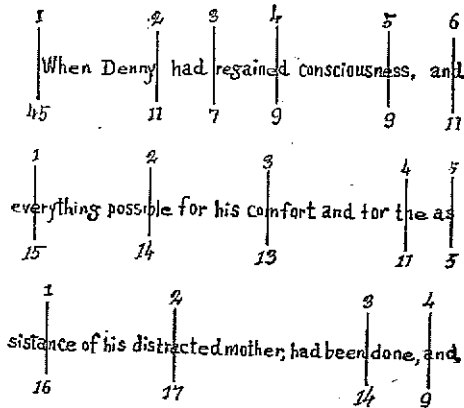 1 2 3 4 5 6
When Denny had regained consciousness, and
45 11 7 9 9 11
1 2 3 4 5
everything possible for his comfort and for the as
15 14 13 11 5
1 2 3 4
sistance of his distracted mother, had been done, and,
16 17 14 9